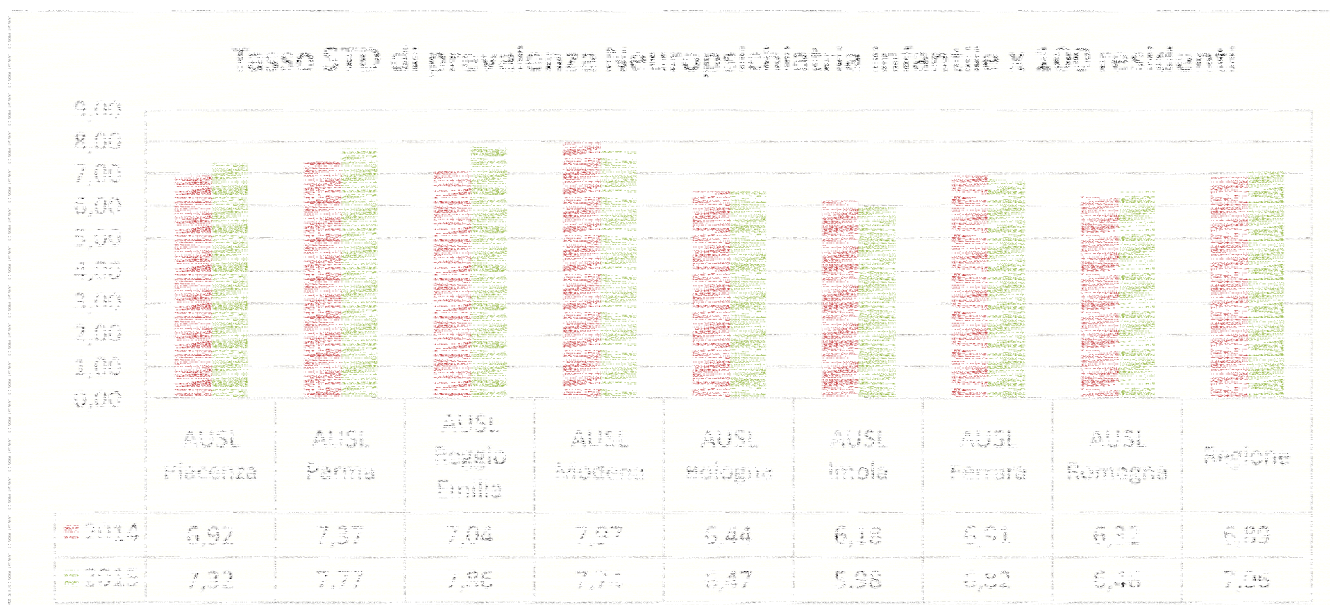 Tasso STD di prevalenza Neuropsichiatria infantile x 100 residenti
9,00
8,00
7,00
6,00
5,00
4,00
3,00
2,00
1,00
0,00
AUSL Piacenza
AUSL Parma
AUSL Reggio Emilia
AUSL Modena
AUSL Bologna
AUSL Imola
AUSL Ferrara
AUSL Romagna
Regione
2014 6,92 7,37 7,04 7,97 6,44 6,18 6,91 6,89
7,32 7,77 7,86 6,47 5,98 6,82 6,46 7,06